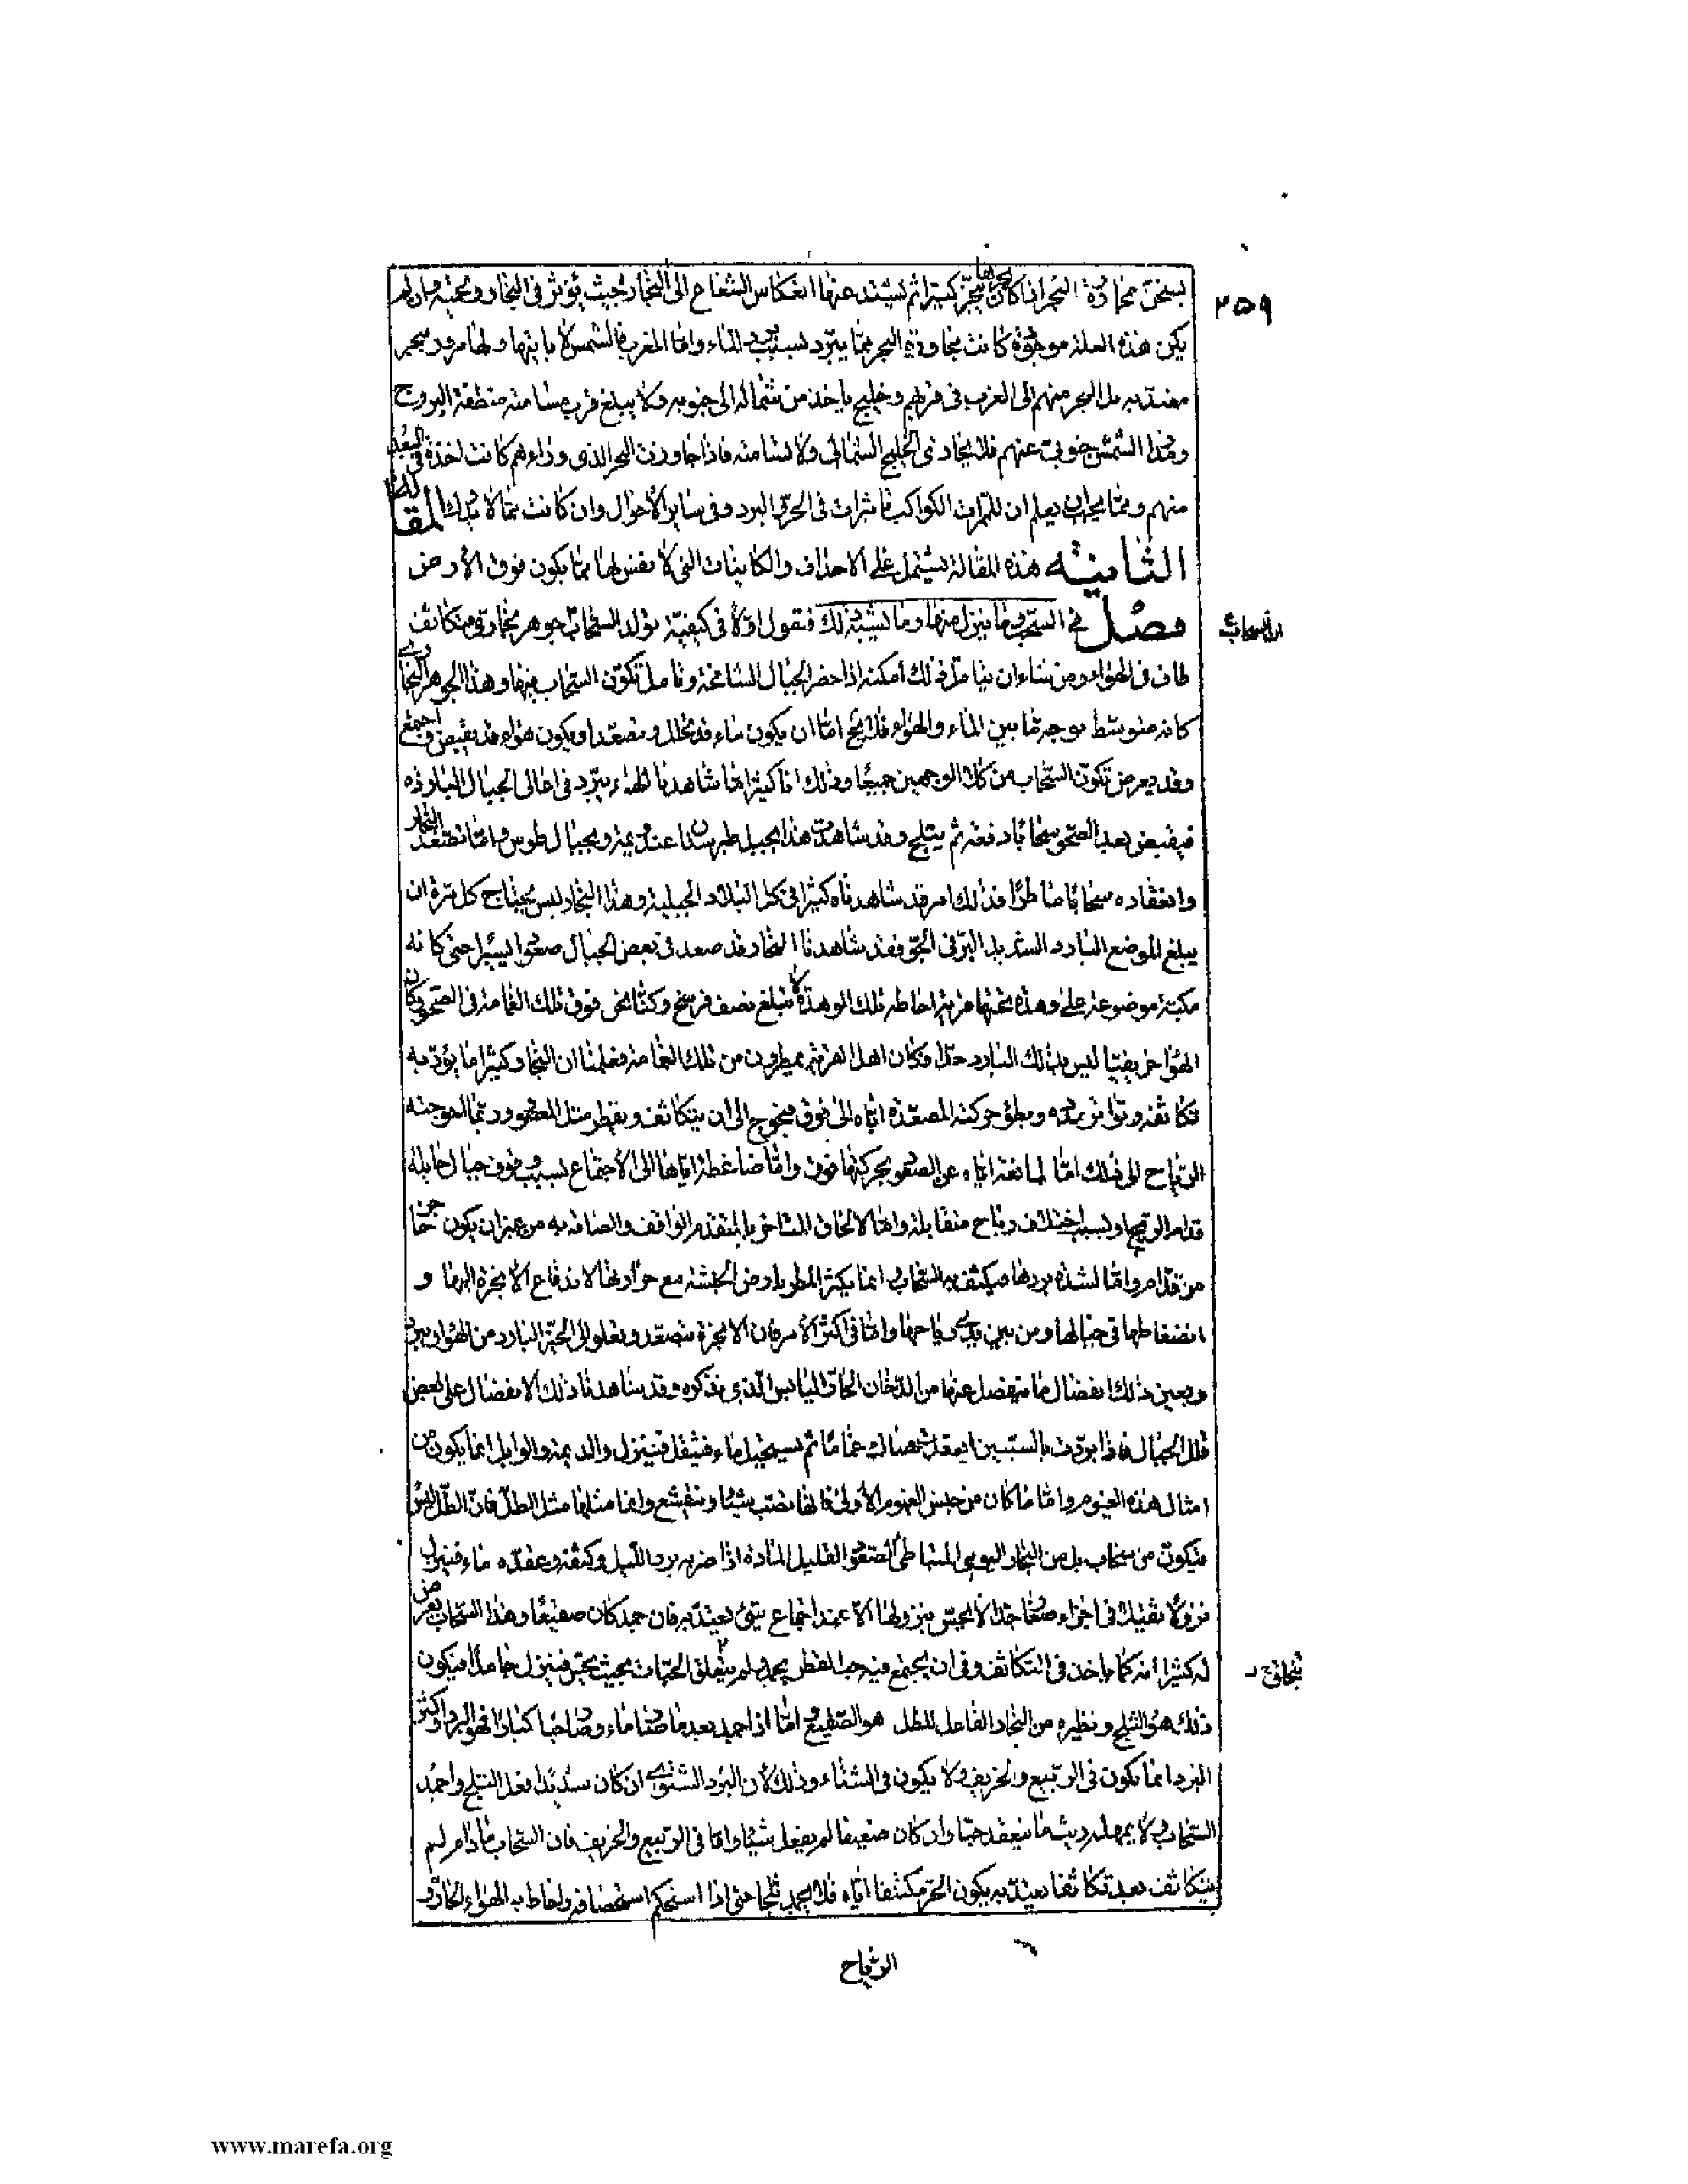 ٢٥٩
يسخن محاذة البحر اذا كان بحرها بحر كبيرا ثم يشتد عنها انعكاس الشعاع الى البخار بحيث يؤثر فى البخار و
يكن هذه العلة موجودة كانت مجاورة البحر مما يبرد بسبب برد الماء واما المغرب فالشمس لا ياتيها ولها مرور ببحر
معتد به بل البحر منهم الى الغرب فى قربهم وخليج ياخذ من شماله الى جنوبه ولا يبلغ قرب مسامتة منطقة البروج
وهذا الشمس جنوبى عنهم فلا يحاذى الخليج الشمالى ولا تسامته فاذا جاوزت البحر الذى وراءهم كانت اخذة فى البعد
منهم ومما يجب ان يعلم ان للقرانات الكواكب تاثيرات فى الحر والبرد وفى سائر الاحوال وان كانت مما لا يدرك المقالة
الثانية هذه المقالة يشتمل على الاحداث والكاينات التى لا نفس لها مما يكون فوق الارض
فصل فى السحب وما ينزل منها وما يشبه ذلك فنقول اولا فى كيفية تولد السحاب جوهر بخارى متكاثف
فى السحاب
طاف فى الهواء ومن شاء ان يتامل ذلك امكنه اذا حضر الجبال الشامخة وتامل تكون السحاب فيها وهذا الجوهر البخارى
كانه متوسط بوجه ما بين الماء والهواء فلا يخ اما ان يكون ماء قد تحلل وتصعد او يكون هواء قد تقبض واجتمع
وقد يعرض تكون السحاب من كلا الوجهين جميعا وذلك انا كثيرا ما شاهدنا الهواء يبرد فى اعالى الجبال الباردة
فينقبض بعد الصحو سحابا دفعة ثم يثلج وقد شاهدت هذا بجبل طبرستان عند ويمة وبجبال طوس واما تصعد البخار
وانعقاده سحابا ماطرا فذلك امر قد شاهدناه كثيرا فى كل البلاد الجبلية وهذا البخار ليس يحتاج كل مرة ان
يبلغ الموضع البارد الشديد البرد فى الجو فقد شاهدنا البخار قد صعد فى بعض الجبال صعودا يسيرا حتى كانه
مكبة موضوعة على وهدة تحتها قرية احاطة تلك الوهدة لا تبلغ نصف فرسخ وكنا نحن فوق تلك الغمامة فى الصحو وكان
الهواء خريفيا ليس بذلك البارد جدا وكان اهل القرية يمطرون من تلك الغمامة فعلمنا ان البخار كثيرا ما يؤدى به
تكاثفه وتواتر مدده وبطؤ حركته المصعدة اياه الى فوق فيحوج الى ان يتكاثف ويقطر مثل المعصور وربما احوجته
الرياح الى ذلك اما لمانعة اياه عن الصعود بحركتها فوق واما ضاغطة اياها الى الاجتماع بسبب وقوف جبال حايلة
قدام الريح او بسبب اختلاف رياح متقابلة واما لالحاق المتاخر بالمتقدم الواقف والصاقه به من غير ان يكون
من قدام واما لشدة بردها فيكثف به السحاب انما يكثر المطر بارض الحبشة مع حرارتها لاندفاع الابخرة اليها و
انضغاطها فى جبالها ومن بين يدى رياحها واما فى اكثر الامر فان الابخرة تتصعد وتعلو الى الحيز البارد من الهواء فيبرد
ويعين ذلك انفصال ما ينفصل عنها من الدخان الحار اليابس الذى نذكره وقد شاهدنا ذلك الانفصال على بعض
قلل الجبال فاذا بردت بالسببين انعقدت هناك غماما ثم يستحيل ماء فيثقل فينزل والديمة والوابل انما يكون من
امثال هذه الغيوم واما ما كان من جنس الغيوم الاولى فانها تصب شيئا وتنقشع وانما مثلها مثل الطل فان الطل ليس
يتكون من سحاب بل من البخار اليومى المتباطئ الصعود القليل المادة اذا ضربه برد الليل وكثفه وعقده ماء فينزل
نزولا ثقيلا فى اجزاء صغار جدا لا يحس بنزولها الا عند اجتماع شئ يعتد به فان جمد كان صقيعا وهذا السحاب يعرض
له كثيرا انه كما ياخذ فى التكاثف وفى ان يجتمع فيه حب القطر يجمد ولم يتخلق الحبات بحيث يحس فينزل جامدا فيكون
ذلك هو الثلج ونظيره من البخار الفاعل للطل هو الصقيع واما اذا جمد بعد ما صار ماء وصار حبا كبارا فهو البرد واكثر
البرد انما يكون فى الربيع والخريف ولا يكون فى الشتاء وذلك لان البرد الشتوى ان كان شديدا فعل الثلج واجمد
السحاب ولا يمهله ريث ما ينعقد حبا وان كان ضعيفا لم يفعل شيئا واما فى الربيع والخريف فان السحاب ما دام لم
يتكاثف بعد تكاثفا يعتد به يكون الحر مكتنفا اياه فلا يجمد ثلجا حتى اذا استحكم استحصافه واحاط به الهواء الحار و
الرياح
www.marefa.org